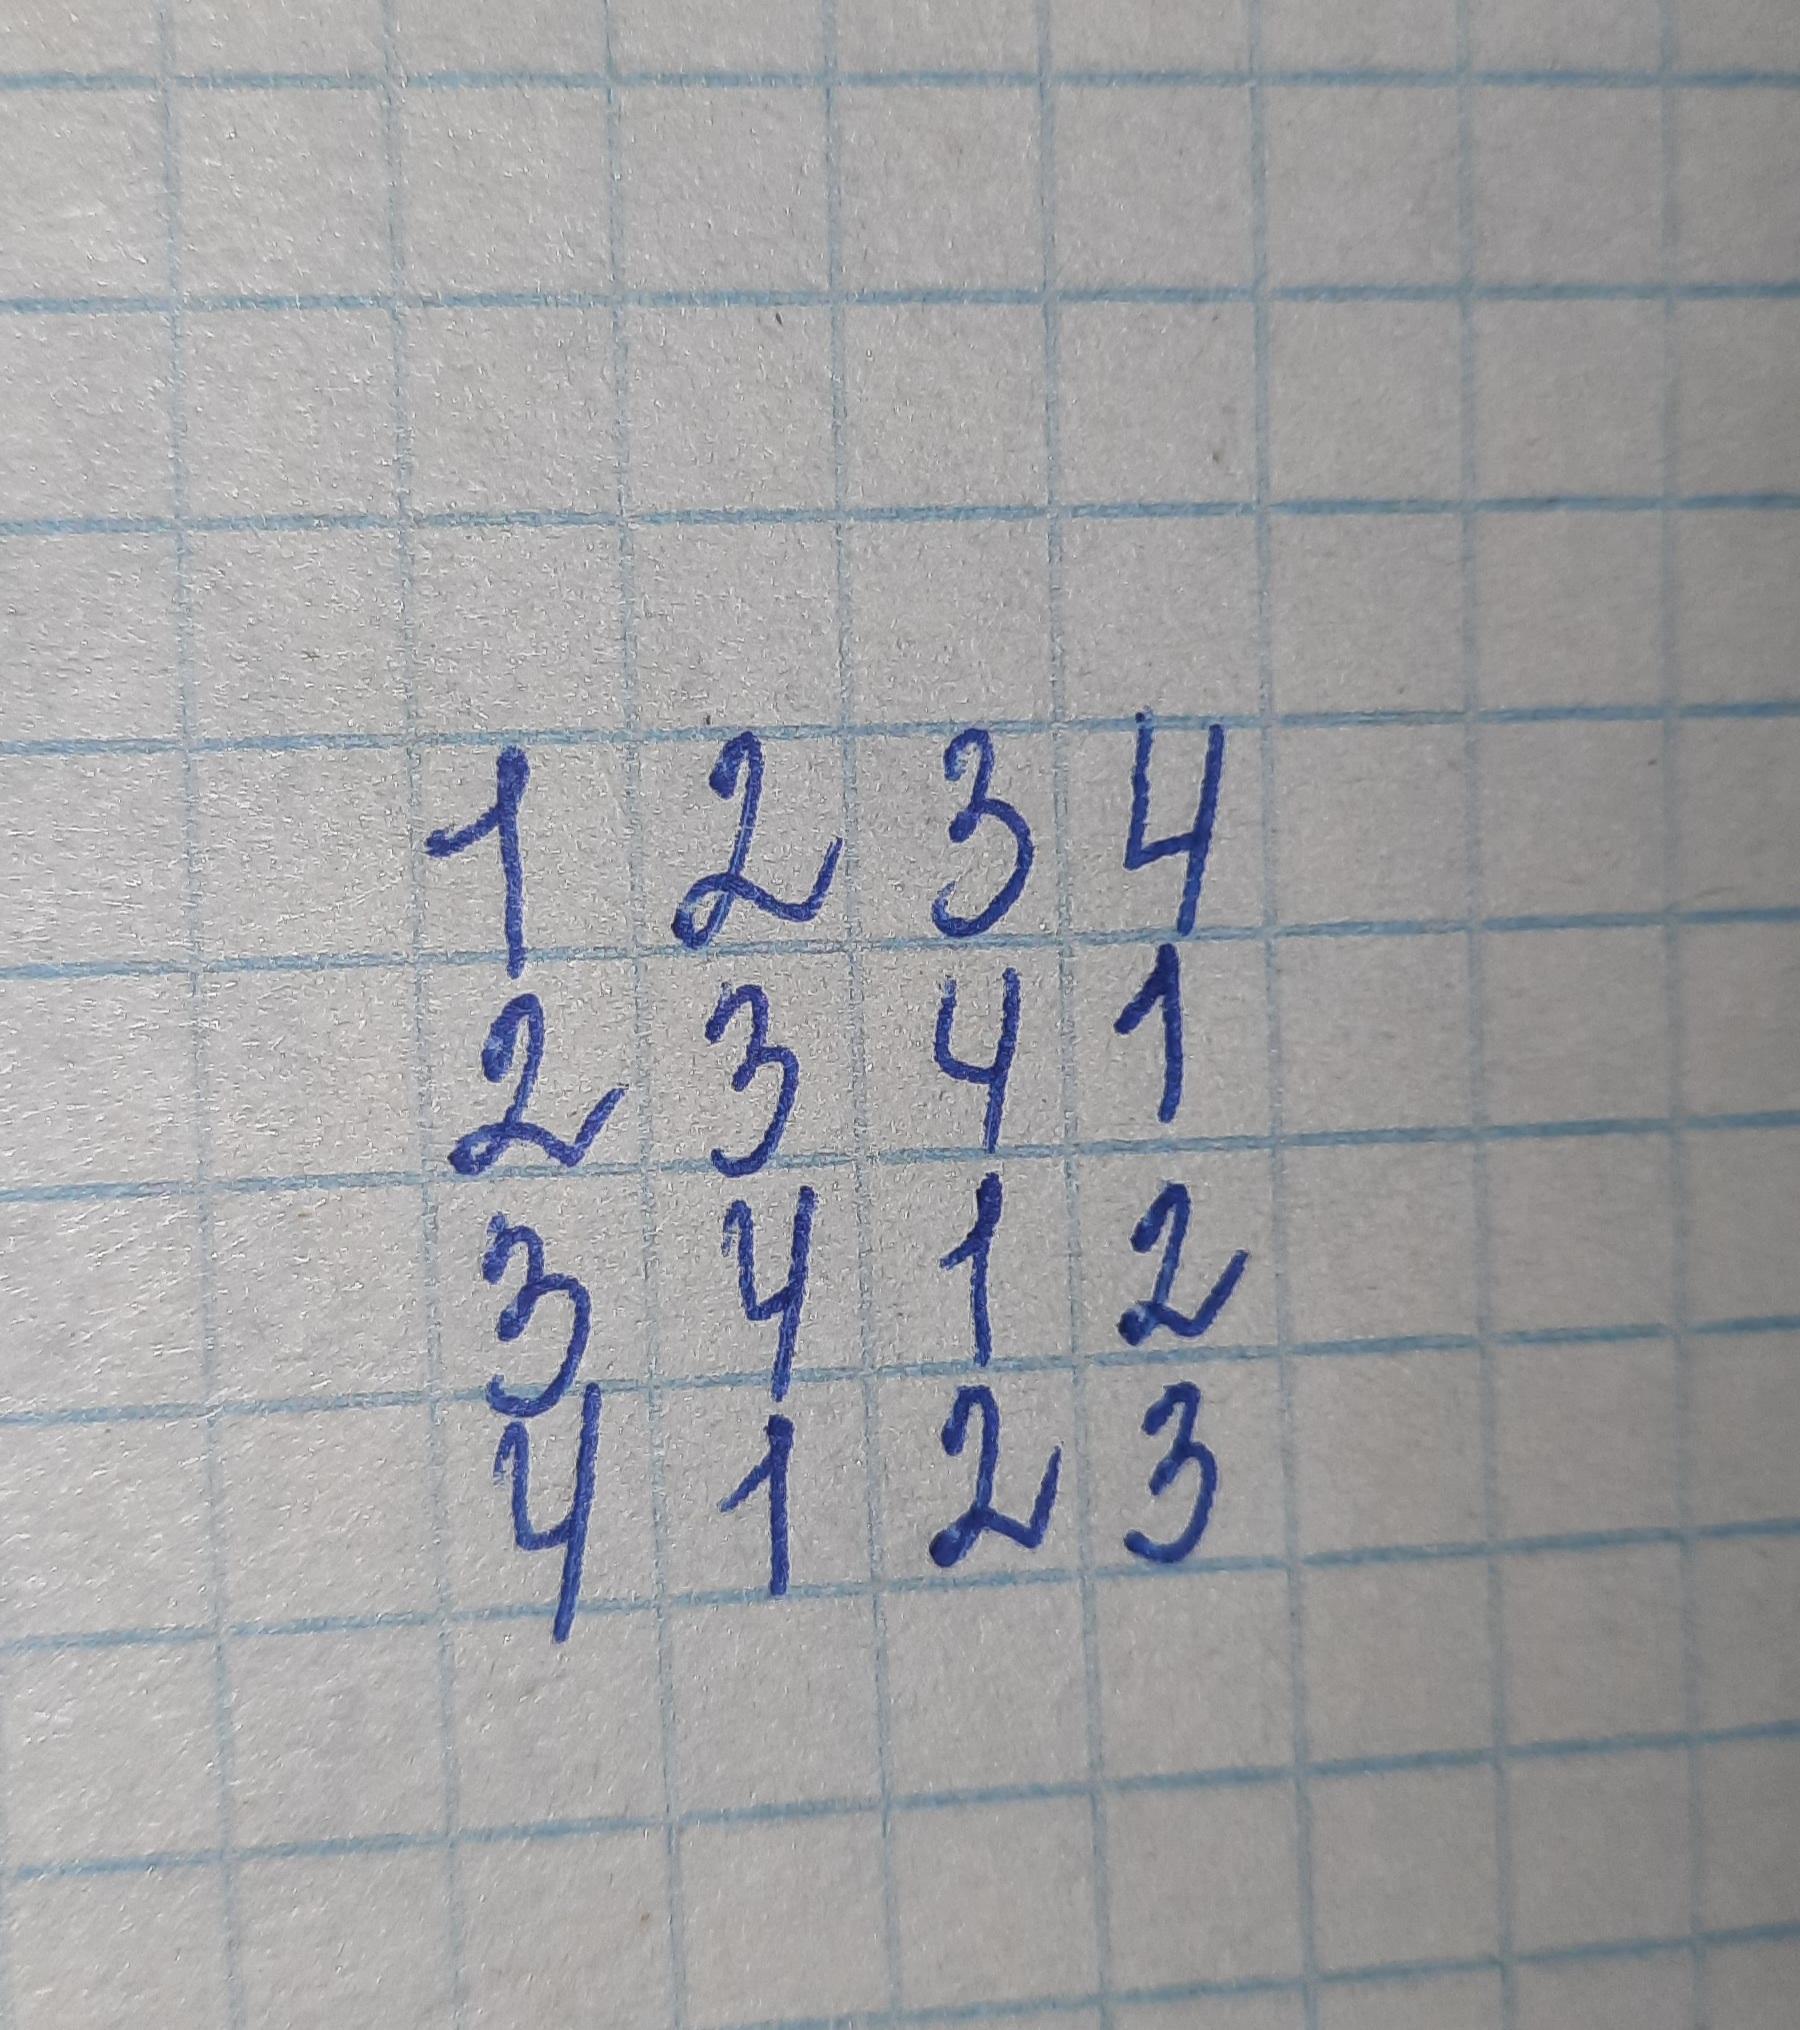 1 2 3 4
2 3 4 1
3 4 1 2
4 1 2 3